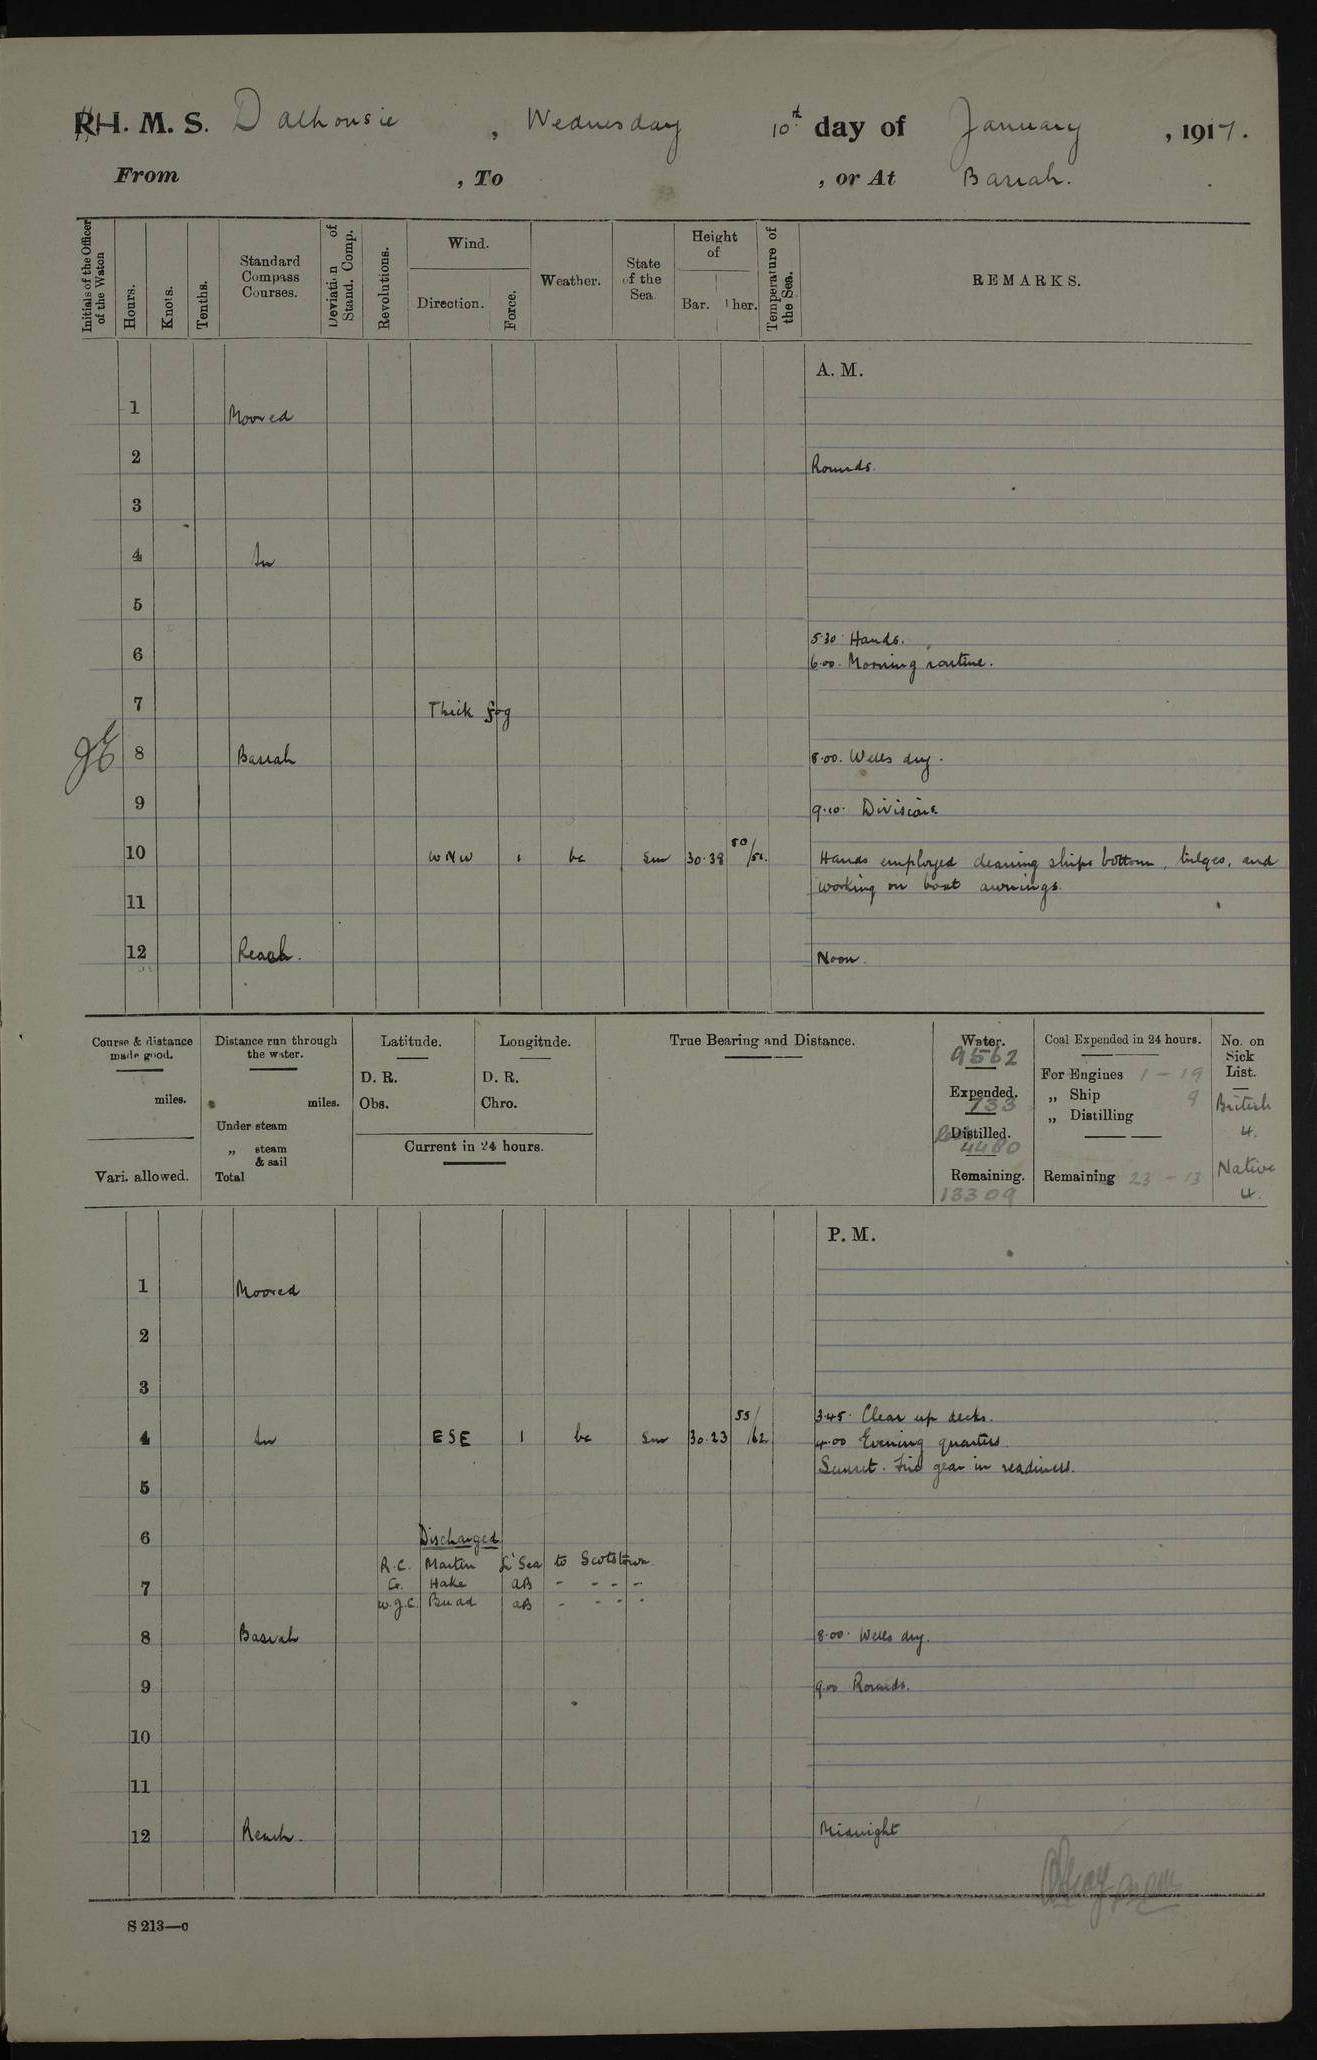 R.H. M. S. Dalhousie , Wednesday 10th day of January , 1917.
From , To , or At Basrah.
Initials of the Officer of the Watch
Hours.
Knots.
Tenths.
Standard Compass Courses.
Deviation of Stand. Comp.
Revolutions.
Wind.
Direction.
Force.
Weather.
State of the Sea.
Height of
Bar. Ther.
Temperature of the Sea.
REMARKS.
A. M.
1 Moored
2 Rounds.
3
4 In
5
5.30 Hands.
6 6.00. Morning routine.
7 Thick fog
8 Basrah 8.00. Wells dry.
9 9.10. Divisions
10 WNW 1 bc Sm 30.38 50/52. Hands employed cleaning ships bottom, bilges, and
working on boat awnings.
11
12 Reach. Noon.
Course & distance made good.
miles.
Vari. allowed.
Distance run through the water.
miles.
Under steam
„ steam & sail
Total
Latitude.
D. R.
Obs.
Longitude.
D. R.
Chro.
Current in 24 hours.
True Bearing and Distance.
Water.
9562
Expended.
733
Distilled.
4480
Remaining.
13309
Coal Expended in 24 hours.
For Engines 1 - 19
„ Ship 9
„ Distilling
Remaining 23 - 13
No. on Sick List.
British
4.
Native
4.
P. M.
1 Moored
2
3
3.45. Clear up decks.
4 In ESE 1 bc Sm 30.23 55/62 4.00 Evening quarters.
Sunset. Fire gear in readiness.
5
6 Discharged
R.C. Martin L'Sea to Scotstoun
7 G. Hake AB - - - -
W.J.C. AB - - - -
8 Basrah 8.00. Wells dry.
9 9.00 Rounds.
10
11
12 Reach. Midnight
S 213—c